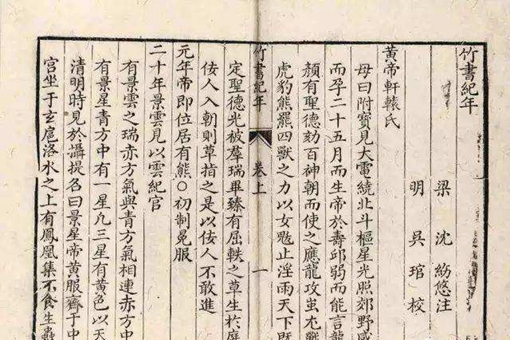 竹書紀年
梁 沈約 注
明 吳琯校
黃帝軒轅氏
母曰附寶見大電繞北斗樞星光照郊野感
而孕二十五月而生帝於壽邱弱而能言龍
顏有聖德劾百神朝而使之應龍攻蚩尤戰
虎豹熊羆四獸之力以女魃止淫雨天下既
竹書紀年 卷上 一
定聖德光被羣瑞畢臻有屈軼之草生於庭
佞人入朝則草指之是以佞人不敢進
元年帝即位居有熊○初制冕服
二十年景雲見以雲紀官
有景雲之瑞赤方氣與青方氣相連赤方中
有景星青方中有一星凡三星有黃色以天
清明時見於攝提名曰景星帝黃服齋于中
宮坐于玄扈洛水之上有鳳凰集不食生蟲